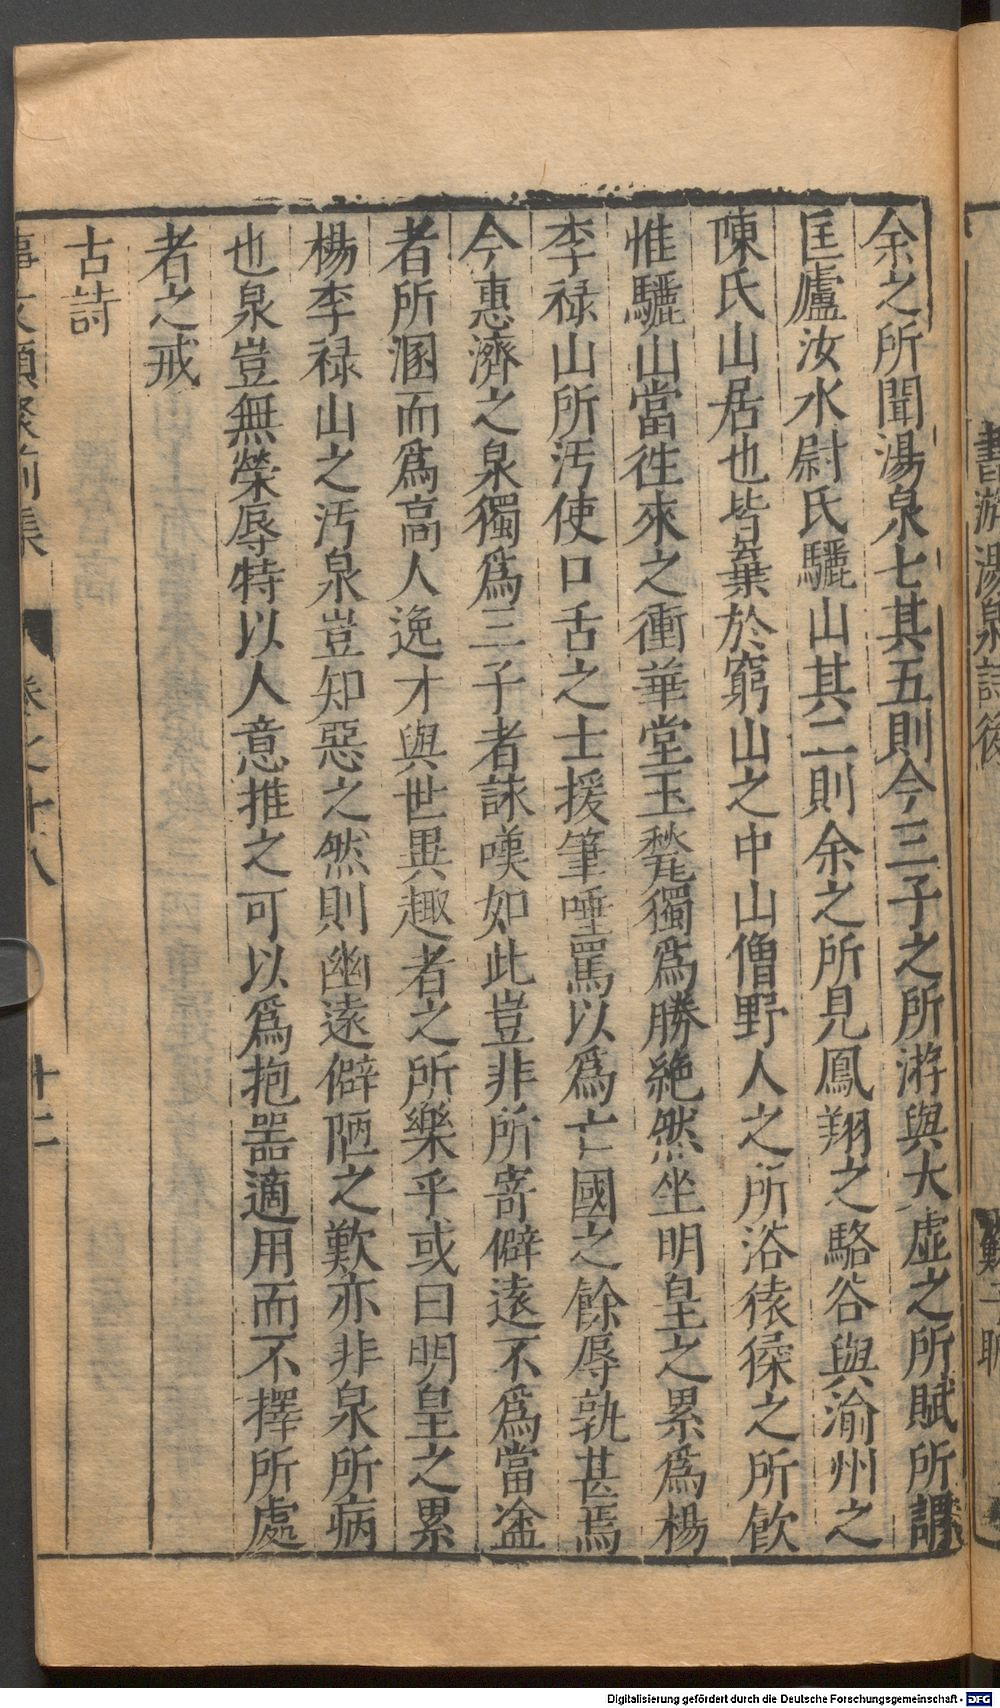 余之所聞湯泉七其五則今三子之所游與大虛之所賦所謂
匡廬汝水尉氏驪山其二則余之所見鳳翔之駱谷與渝州之
陳氏山居也皆棄於窮山之中山僧野人之所浴猿猱之所飲
惟驪山當徃來之衝華堂玉甃獨爲勝絶然坐明皇之累爲楊
李禄山所汚使口舌之士援筆唾罵以爲亡國之餘辱孰甚焉
今惠濟之泉獨爲三子者詠嘆如此豈非所寄僻逺不爲當塗
者所溷而爲高人逸才與世異趣者之所樂乎或曰明皇之累
楊李禄山之汚泉豈知惡之然則幽逺僻陋之歎亦非泉所病
也泉豈無榮辱特以人意推之可以爲抱噐適用而不擇所處
者之戒
古詩
事文類聚前集 卷之十八 十二
書游湯泉詩後 蘇子瞻
Digitalisierung gefördert durch die Deutsche Forschungsgemeinschaft - DFG